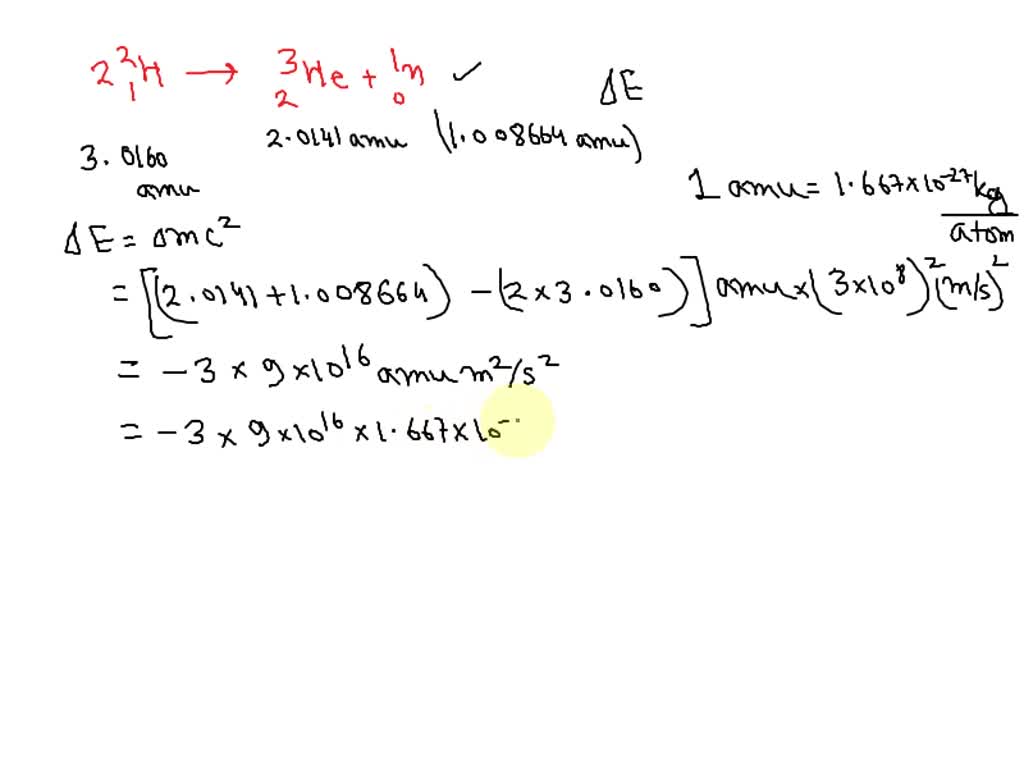 2 ²₁H → ³₂He + ¹₀n ✓
ΔE
3.0160 amu
2.0141 amu (1.008664 amu)
1 amu = 1.667×10⁻²⁷ kg/atom
ΔE = Δmc²
= [(2.0141+1.008664) - (2×3.0160)] amu × (3×10⁸)² (m/s)²
= -3 × 9×10¹⁶ amu m²/s²
= -3 × 9×10¹⁶ × 1.667×10⁻